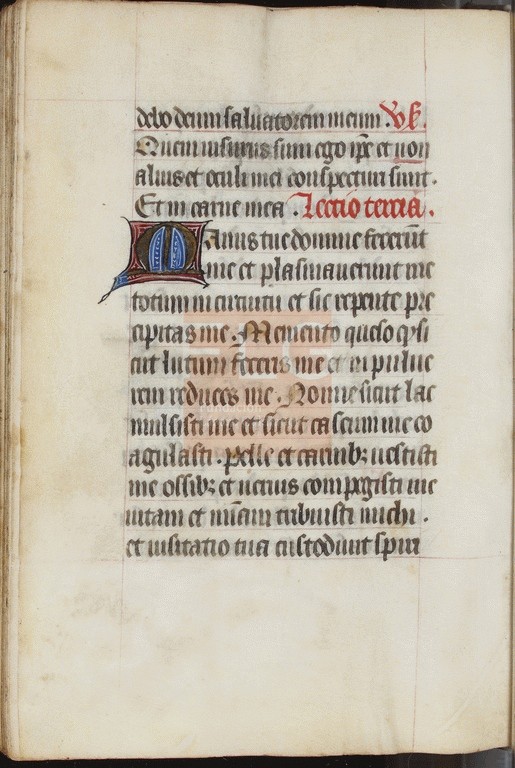 debo deum saluatorem meum . V̷s.
Quem uisurus sum ego ip̅e et non
alius et oculi mei conspecturi sunt.
Et in carne mea . Lectio tercia .
Manus tue domine fecer̅ut
me et plasmauerunt me
totum in circuitu et sic repente pre
cipitas me . Memento queso q̅ si
cut lutum feceris me et in pulue
rem reduces me . Nonne sicut lac
mulsisti me et sicut caseum me co
agulasti . pelle et carnibꝫ uestisti
me ossibꝫ et neruis compegisti me
uitam et mi̅am tribuisti michi .
et uisitatio tua custodiuit spiri